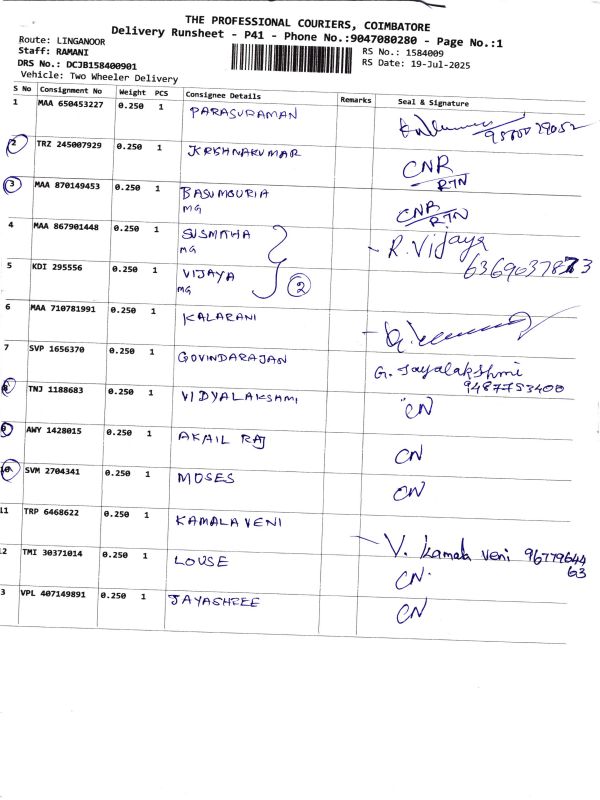 THE PROFESSIONAL COURIERS, COIMBATORE
Delivery Runsheet - P41 - Phone No.:9047080280 - Page No.:1
Route: LINGANOOR
Staff: RAMANI
RS No.: 1584009
DRS No.: DCJB158400901
RS Date: 19-Jul-2025
Vehicle: Two Wheeler Delivery
S No Consignment No Weight PCS Consignee Details Remarks Seal & Signature
1 MAA 650453227 0.250 1 PARASURAMAN
2 TRZ 245007929 0.250 1 KRSHNAKUMAR CNR
RTN
3 MAA 870149453 0.250 1 BASUMOURIA CNR
MG RTN
4 MAA 867901448 0.250 1 SUSMITHA R. Vijaya
MG 6369037873
5 KDI 295556 0.250 1 VIJAYA
MG 2
6 MAA 710781991 0.250 1 KALARANI
7 SVP 1656370 0.250 1 GOVINDARAJAN G. Jayalakshmi
9487753400
8 TNJ 1188683 0.250 1 VIDYALAKSAMI CN
9 AWY 1428015 0.250 1 AKAIL RAJ CN
10 SVM 2704341 0.250 1 MOSES CN
11 TRP 6468622 0.250 1 KAMALAVENI V. Kamala veni 96779644
63
12 TMI 30371014 0.250 1 LOUSE CN
3 VPL 407149891 0.250 1 JAYASHREE CN